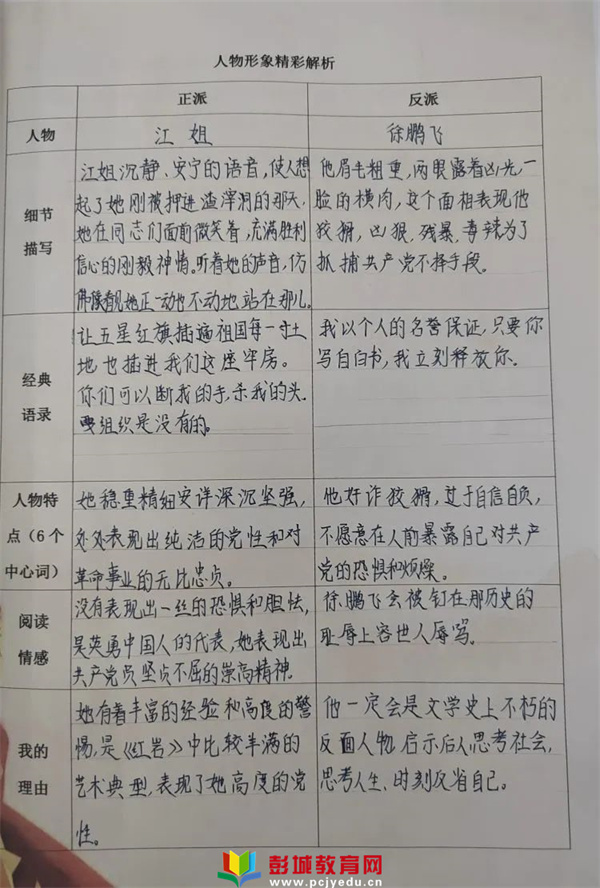 人物形象精彩解析
正派
反派
人物
江姐
徐鹏飞
细节
描写
江姐沉静、安宁的语音,使人想
起了她刚被押进渣滓洞的那天,
她在同志们面前微笑着,充满胜利
信心的刚毅神情。听着她的声音,仿
佛看见她正一动也不动地站在那儿。
他眉毛粗重,两眼露着凶光,一
脸的横肉,这个面相表现他
狡猾,凶狠,残暴,毒辣为了
抓捕共产党不择手段。
经典
语录
让五星红旗插遍祖国每一寸土
地也插进我们这座牢房。
你们可以断我的手,杀我的头.
要组织是没有的。
我以个人的名誉保证,只要你
写自白书,我立刻释放你.
人物特
点(6个
中心词)
她稳重精细安详深沉坚强,
处处表现出纯洁的党性和对
革命事业的无比忠贞。
他奸诈狡猾,过于自信自负,
不愿意在人前暴露自己对共产
党的恐惧和烦燥。
阅读
情感
没有表现出一丝的恐惧和胆怯,
是英勇中国人的代表,她表现出
共产党员坚贞不屈的崇高精神.
徐鹏飞会被钉在那历史的
耻辱上容世人辱骂。
我的
理由
她有着丰富的经验和高度的警
惕,是《红岩》中比较丰满的
艺术典型,表现了她高度的党
性。
他一定会是文学史上不朽的
反面人物.启示后人思考社会,
思考人生、时刻反省自己。
彭城教育网
www.pcjyedu.cn